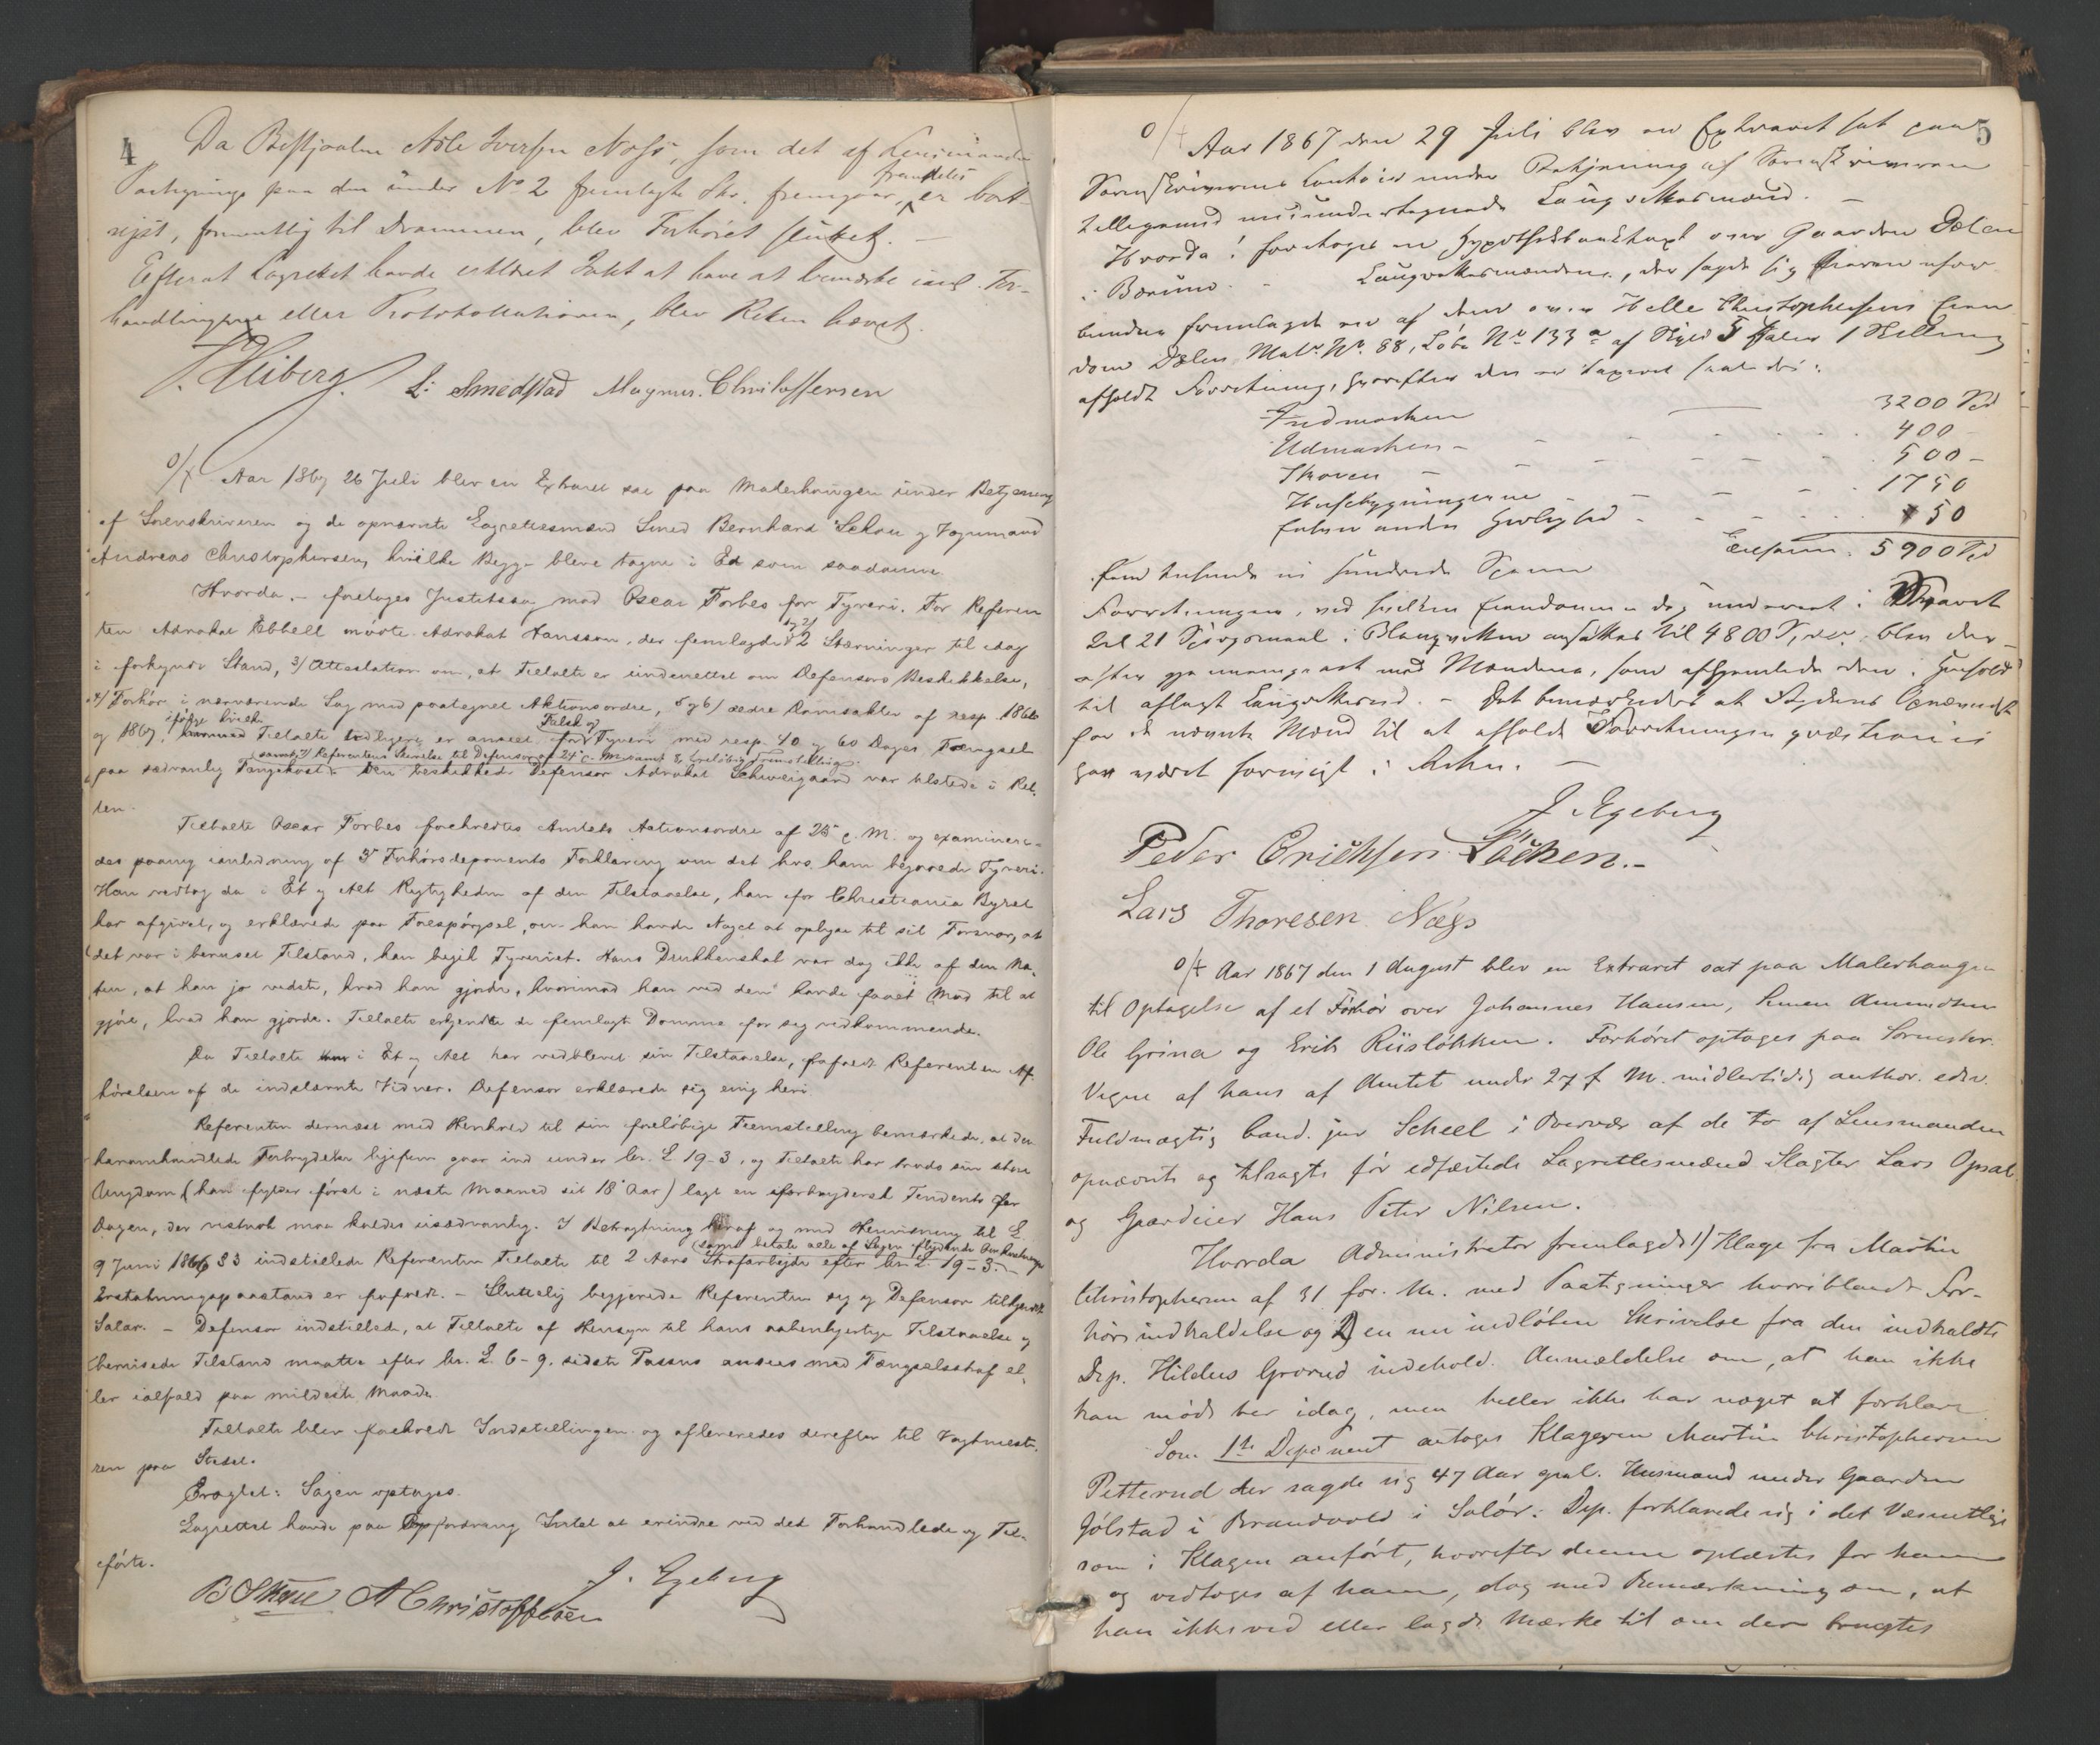 4
Da Beskjaalne Atle Iversen Noss, som det af Lensmandens
Paategning paa den under No 2 fremlagte Skr. fremgaar, fremdeles er bort-
rejst, formentlig til Drammen, blev Forhöret sluttet. —
Efterat Lagrettet havde erklæret Intet at have at bemærke imod For-
handlingerne eller Protokollationen, blev Retten hævet.
Hiberg. L: Smedstad Magnus. Christoffersen
O/ Aar 1867 26 Juli blev en Extraret sat paa Malerhaugen under Betjening
af Sorenskriveren og de opnævnte Lagrettesmænd Smed Bernhard Schou og Vognmand
Andreas Christophersen, hvilke Begge bleve tagne i Ed som saadanne.
Hvorda. – foretoges Justitssag mod Oscar Forbes for Tyveri. For Referen
ten Advokat Ebbell mödte Advokat Hansson, der fremlagde 1 og 2/ 2 Stævninger til idag
i forkyndt Stand, 3/ Attestation om, at Tiltalte er underrettet om Defensors Beskikkelse,
4/ Forhör i nærværende Sag med paategnet Aktionsordre, 5 og 6/ ældre Domsakter af resp. 1866
og 1867, ifölge hvilke Tiltalte tidligere er anseet for Falsk og Tyveri med resp. 40 og 60 Dages Fængsel
paa sædvanlig Fangekost samt 7/ Referentens Skrivelse til Defensor af 24 c. M. samt 8 foreløbig Fremstilling. – Den beskikkede Defensor Advokat Schweigaard var tilstede i Ret-
ten.
Tiltalte Oscar Forbes foreholdtes Amtets Actionsordre af 25 c. M. og examinere-
des paany i anledning af 3die Forhørsdeponents Forklaring om det hos ham begaaede Tyveri.
Han vedtog da i Et og Alt Rigtigheden af den Tilstaaelse, han for Christiania Byret
har afgivet, og erklærede paa Forespørgsel, om han havde Noget at oplyse til sit Forsvar, at
det var i beruset Tilstand, han begik Tyveriet. Hans Drukkenskab var dog ikke af den Na-
tur, at han jo vidste, hvad han gjorde, hvorimod han ved den havde faaet Mod til at
gjöre, hvad han gjorde. Tiltalte erkjendte de fremlagte Domme for sig vedkommende.
Da Tiltalte i Et og Alt har vedblevet sin Tilstaaelse, frafaldt Referenten Af-
hörelsen af de indstævnte Vidner. Defensor erklærede sig enig heri
Referenten dernæst med Henhold til sin foreløbige Fremstilling bemærkede, at den
heromhandlede Forbrydelse hjefem gaar ind under kr. L 19-3, og Tiltalte har trods sin store
Ungdom (han fylder först i næste Maaned sit 18de Aar) lagt en forbrydersk Tendents for
Dagen, der vistnok maa kaldes usædvanlig. I Betragtning heraf og med Henvisning til L.
9 Juni 1866 § 3 indstillede Referenten Tiltalte til 2 Aars Strafarbejde efter kr. L 19-3. samt betale alle af Sagen flydende Omkostninger
Erstatningspaastand er frafaldt. – Sluttelig begjærede Referenten sig og Defensor tilkjendt
Salær. – Defensor indstillede, at Tiltalte af Hensyn til hans aabenhjertige Tilstaaelse og
berusede Tilstand maatte efter kr. L. 6-9. sidste Passus ansees med Fængselsstraf el-
ler ialfald paa mildeste Maade.
Tiltalte blev foreholdt Indstillingen og afleveredes derefter til Vagtmeste-
ren paa Stedet.
Eragtet: Sagen optages.
Lagrettet havde paa Opfordring Intet at erindre ved det Forhandlede og Til-
förte.
B Schou A Christoffersen J. Egeberg
5
O/ Aar 1867 den 29 Juli blev en Extraret sat paa
Sorenskriverens Contoir under Betjening af Sorenskriveren
tilligemed medundertegnede Laugrettesmænd. –
Hvorda! foretoges en Hypothekbanktaxt over Gaarden Dælen
i Bærum. – Laugrettesmændene, der sagde sig herom ufor-
bundne fremlagde en af dem over Helle Christophersens Eien
dom Dælen Matr. Nr. 88, Løbe No 133 a af Skyld 5 Daler 1 Skilling
afholdt Forretning, hvorefter den er taxeret saaledes:
Indmarken — 3200 Spd
Udmarken – – – – 400 –
Skoven – – – – 500 –
Husebygningerne – – – – 1750
Enhver anden Herlighed – – – – 50
Tilsammen. 5900 Spd
fem tusinde ni hundrede Specier
Forretningen, ved hvilken Eiendommen dog underveat i Extraret
Del 21 Sjörgsmaal i Blanquetten ansættes til 4800 Spd, blev der-
efter gjennemgaaet med Mændene, som afhjemlede den i Henhold
til aflagt Laugrettesed. – Det bemærkedes at Stedens Opnævnelse
for de nævnte Mænd til at afholde Forretningen quæstionis
har været forevist i Retten. —
J Egeberg
Peder Erichsen Löcken. –
Lars Thoresen Næss
O/ Aar 1867 den 1 August blev en Extraret sat paa Malerhaugen
til Optagelse af et Forhör over Johannes Hansen, Simen Amundsen
Ole Grina og Erik Riislökken. Forhöret optoges paa Sorenskr.
Vegne af hans af Amtet under 27 f M. midlertidig author. edsv.
Fuldmægtig Cand. jur Scheel i Overvær af de to af Lensmanden
opnævnte og tilsagte för edfæstede Lagrettesmænd Slagter Lars Opsal
og Gaardeier Hans Peter Nilsen.
Hvorda Administrator fremlagde 1) Klage fra Martin
Christophersen af 31 for. M. med Paategninger hvoriblandt For-
hörsindkaldelse og 2) en nu indløben Skrivelse fra den indkaldte
Dep. Hildeus Grorud indehold. Anmeldelse om, at han ikke
kan møde her idag, men heller ikke har noget at forklare.
Som 1ste Deponent antoges Klageren Martin Christophersen
Petterud der sagde sig 47 Aar gml. Husmand under Gaarden
Jölstad i Brandvold i Solör. Dep. forklarede sig i det Væsentlige
som i Klagen anført, hvorefter denne oplæstes for ham
og vedtoges af ham, dog med Bemærkning om, at
han ikke ved eller lagde Mærke til om der brugtes